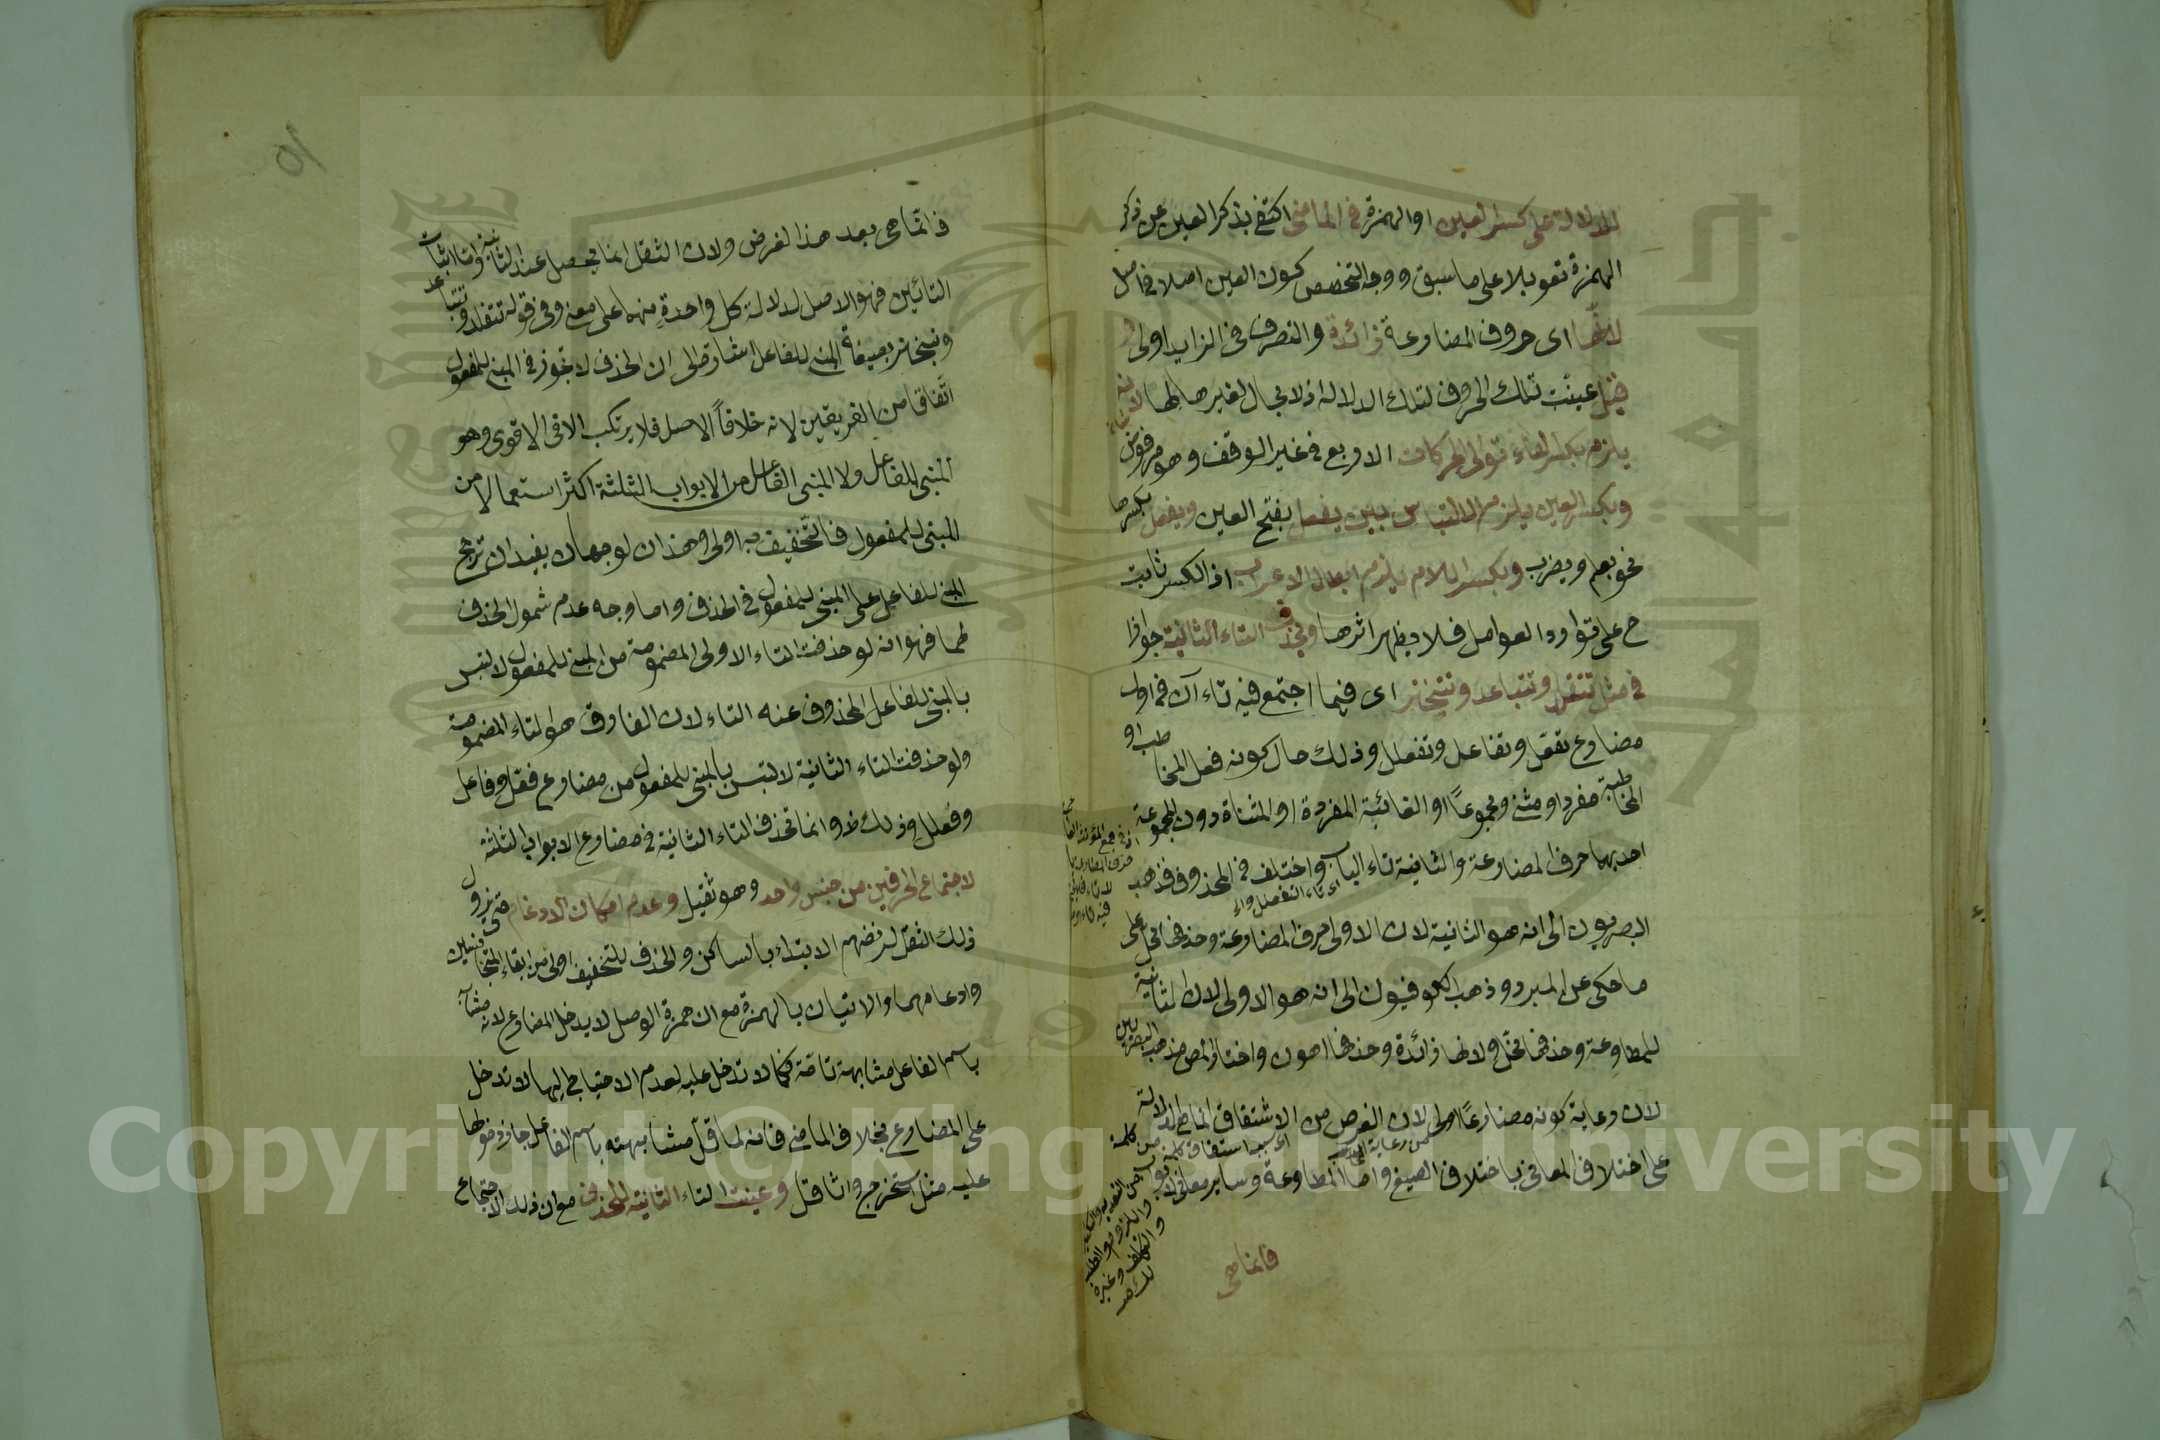 للدلالة على كسر العين او الهمزة في الماضي اكتفى بذكر العين عن ذكر
الهمزة تعويلا على ما سبق ووجه التخصيص كون العين اصلا في
لانها اى حروف المضارعة زائدة والتصرف في الزايد اولى
قيل عينت تلك الحروف لتلك الدلالة اذ لا مجال لغيرها لها لانه
يلزم بكسر الفاء توالى الحركات الاربع في غير الوقف وهو مرفوض
وبكسر العين يلزم الالتباس بين يفعل بفتح العين ويفعل بكسرها
نحو يعلم ويضرب وبكسر اللام يلزم ابطال الاعراب اذ الكسر ثابت
ح على توارد العوامل فلا يظهر اثرها ويحذف التاء الثانية جوازا
في مثل تتقلد وتتباعد وتتبختر اى فيما اجتمع فيه تاءان في اول
مضارع تفعل وتفاعل وتفعلل وذلك حال كونه فعل المخاطب او
المخاطبة مفردا ومثنى ومجموعا او الغائبة المفردة او المثناة دون المجموعة
احديهما حرف المضارعة والثانية تاء الباب واختلف في المحذوف فذهب
البصريون الى انه هو الثانية لان الاولى حرف المضارعة وحذفها مخل على
ما حكى عن المبرد وذهب الكوفيون الى انه هو الاولى لان الثانية
للمطاوعة وحذفها مخل ولانها زائدة وحذفها اهون واختار المص مذهب البصريين
لان رعاية كونه مضارعا اولى لان الغرض من الاشتقاق انما هو الدلالة
على اختلاف المعانى باختلاف الصيغ واما المطاوعة وساير معانى الابواب
فانما هى
فانما هى بعد هذا الغرض ولان الثقل انما يحصل عند الثانية واما اثبات
التائين فهو الاصل لدلالة كل واحدة منهما على معنى وفي قوله تتقلد وتتباعد
وتتبختر بصيغة المبنى للفاعل اشارة الى ان الحذف لا يجوز في المبنى للمفعول
اتفاقا من الفريقين لانه خلاف الاصل فلا يرتكب الا في الاقوى وهو
المبنى للفاعل ولا المبنى الفاعل من الابواب الثلثة اكثر استعمالا من
المبنى للمفعول فالتخفيف به اولى وهذان لوجهان يفيدان ترجح
المبنى للفاعل على المبنى للمفعول في الحذف واما وجه عدم شمول الحذف
لهما فهو انه لو حذفت التاء الاولى المضمومة من المبنى للمفعول لالتبس
بالمبنى للفاعل المحذوف عنه التاء لان الفارق هو التاء المضمومة
ولو حذفت التاء الثانية لالتبس بالمبنى للمفعول من مضارع فعل وفاعل
وفعلل وذلك ظ وانما تحذف التاء الثانية في مضارع الابواب الثلثة
لاجتماع الحرفين من جنس واحد وهو ثقيل وعدم امكان الادغام حتى يزول
ذلك الثقل لرفضهم الابتداء بالساكن والحذف للتخفيف اولى من ابقاء المتجانسين
وادغامهما والاتيان بالهمزة مع ان همزة الوصل لا يدخل المضارع لانه مشابه
باسم الفاعل مشابهة تامة فكما لا تدخل عليه لعدم الاحتياج اليها لا تدخل
على المضارع بخلاف الماضي فانه لما قل مشابهته باسم الفاعل جاز دخولها
عليه مثل استخرج واثاقل وعينت التاء الثانية للحذف مع ان ذلك الاجتماع
Copyright © King Saud University